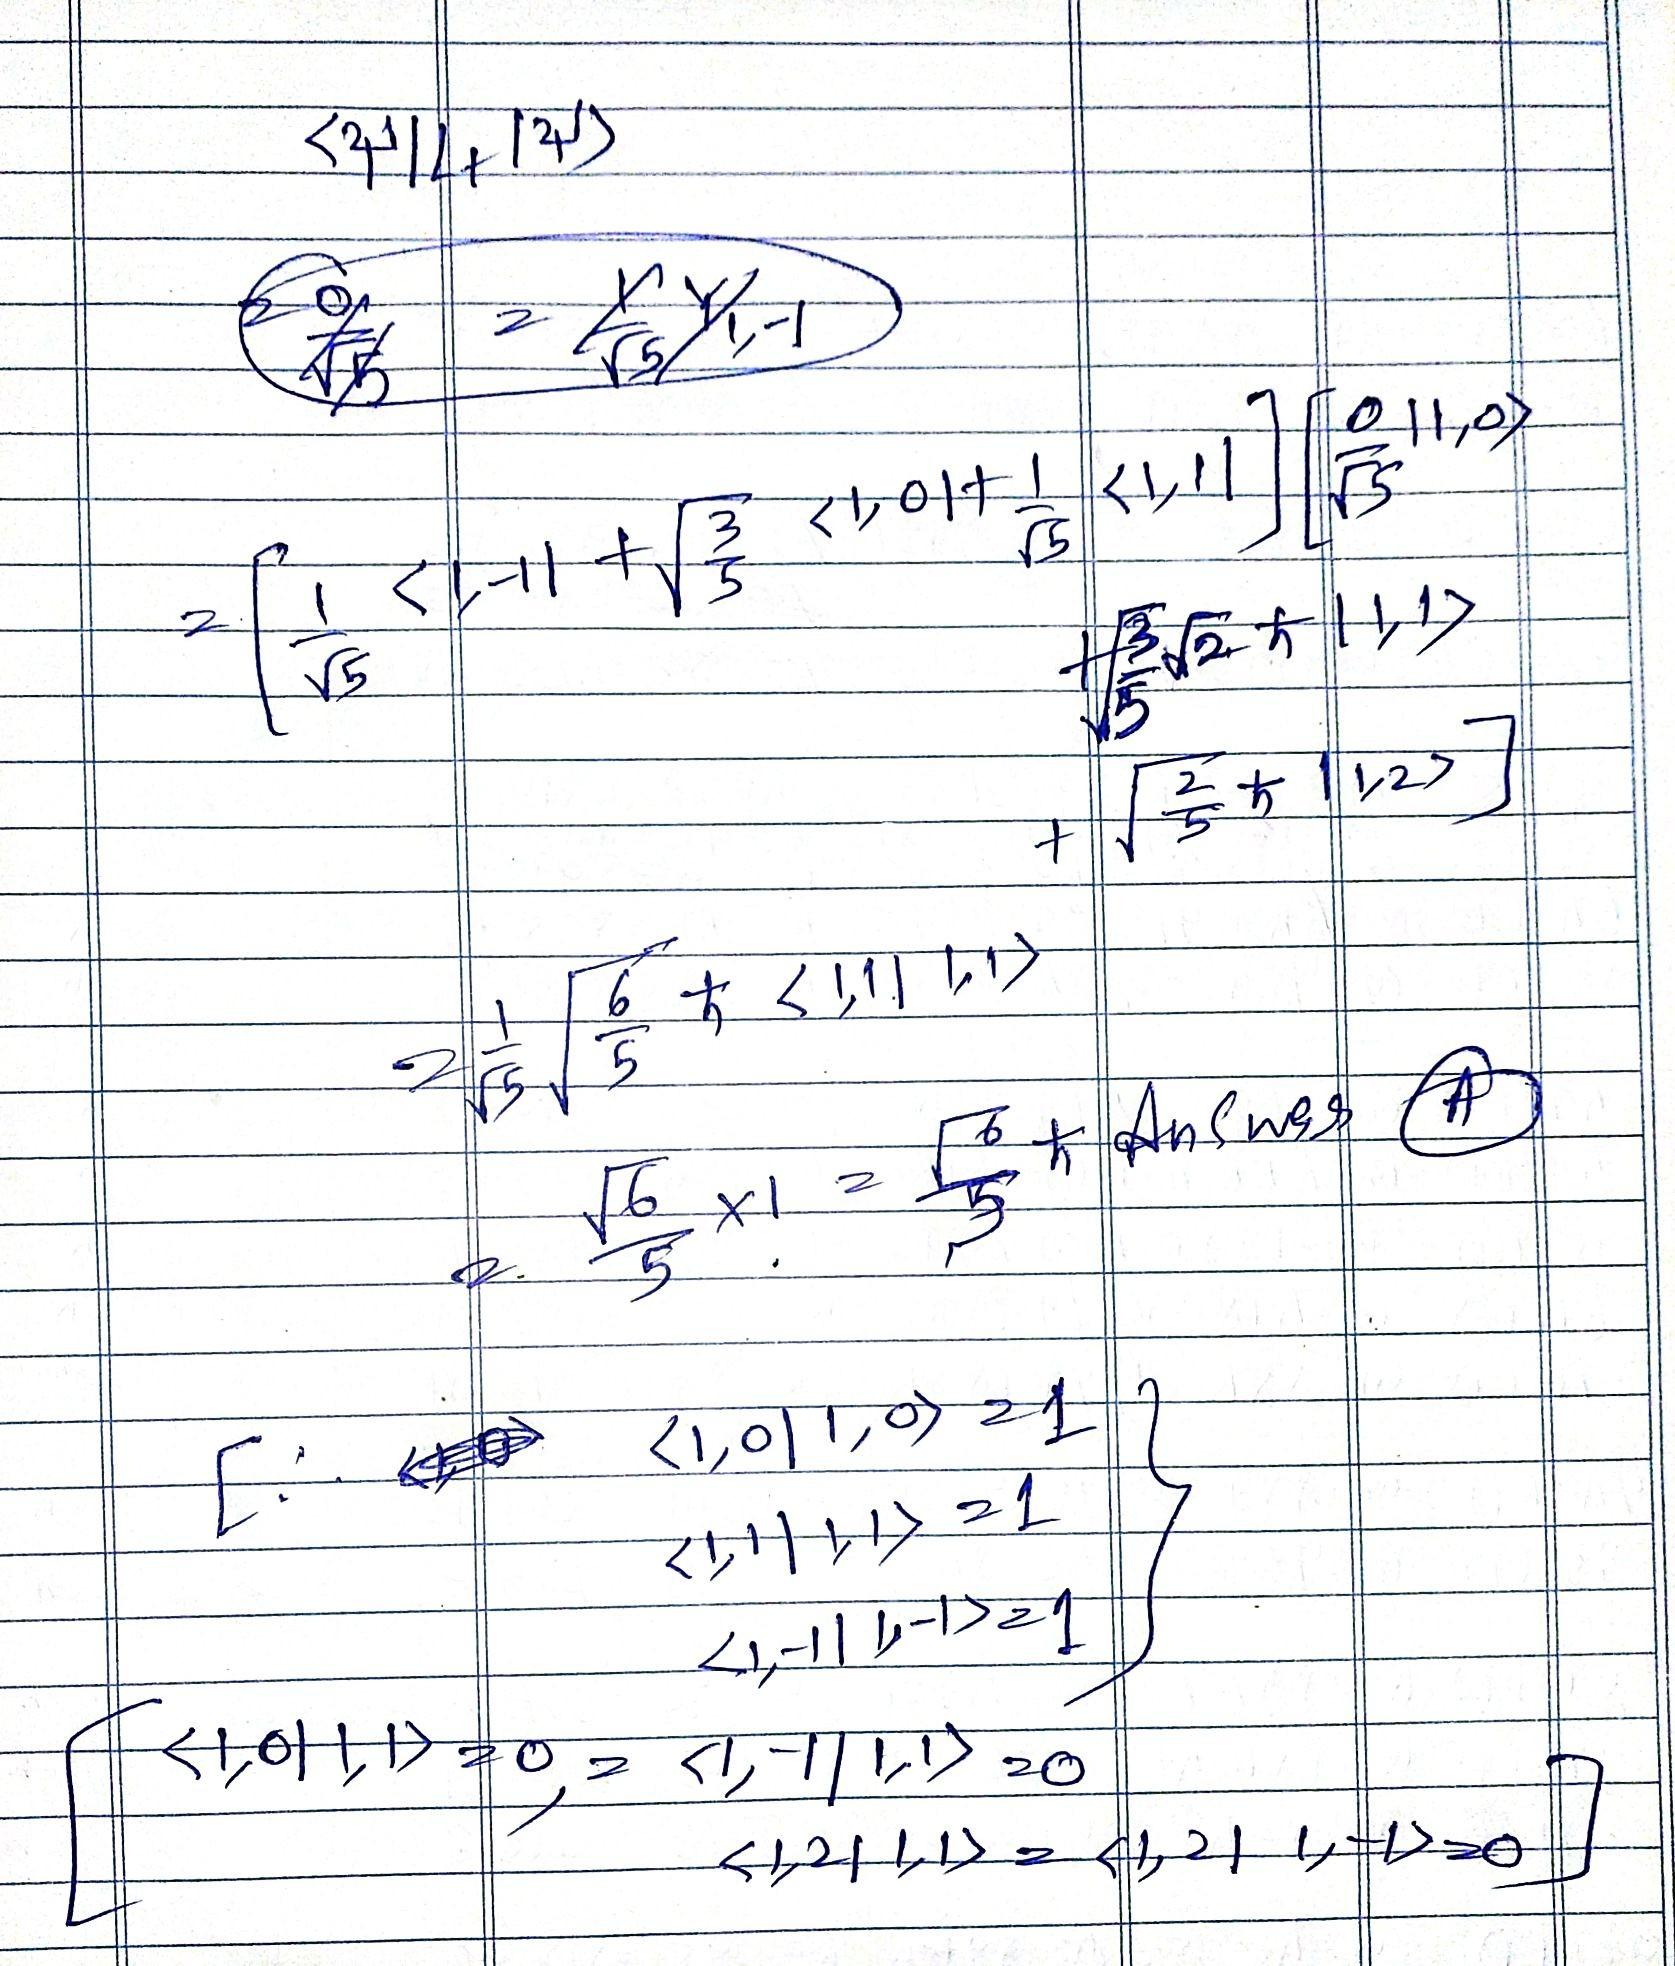 <ψ|L₊|ψ>
= 0/√5 = 1/√5 Y₁,₋₁
= [1/√5 <1,-1| + √(3/5) <1,0| + 1/√5 <1,1|] [0/√5 |1,0>
+ √(3/5) √2 ħ |1,1>
+ √(2/5) ħ |1,2>]
= 1/√5 √(6/5) ħ <1,1|1,1>
= √6/5 × 1 = √6/5 ħ Answer (A)
[∵ <1,0|1,0> = 1
<1,1|1,1> = 1
<1,-1|1,-1> = 1 }
[<1,0|1,1> = 0, = <1,-1|1,1> = 0
<1,2|1,1> = <1,2|1,-1> = 0]